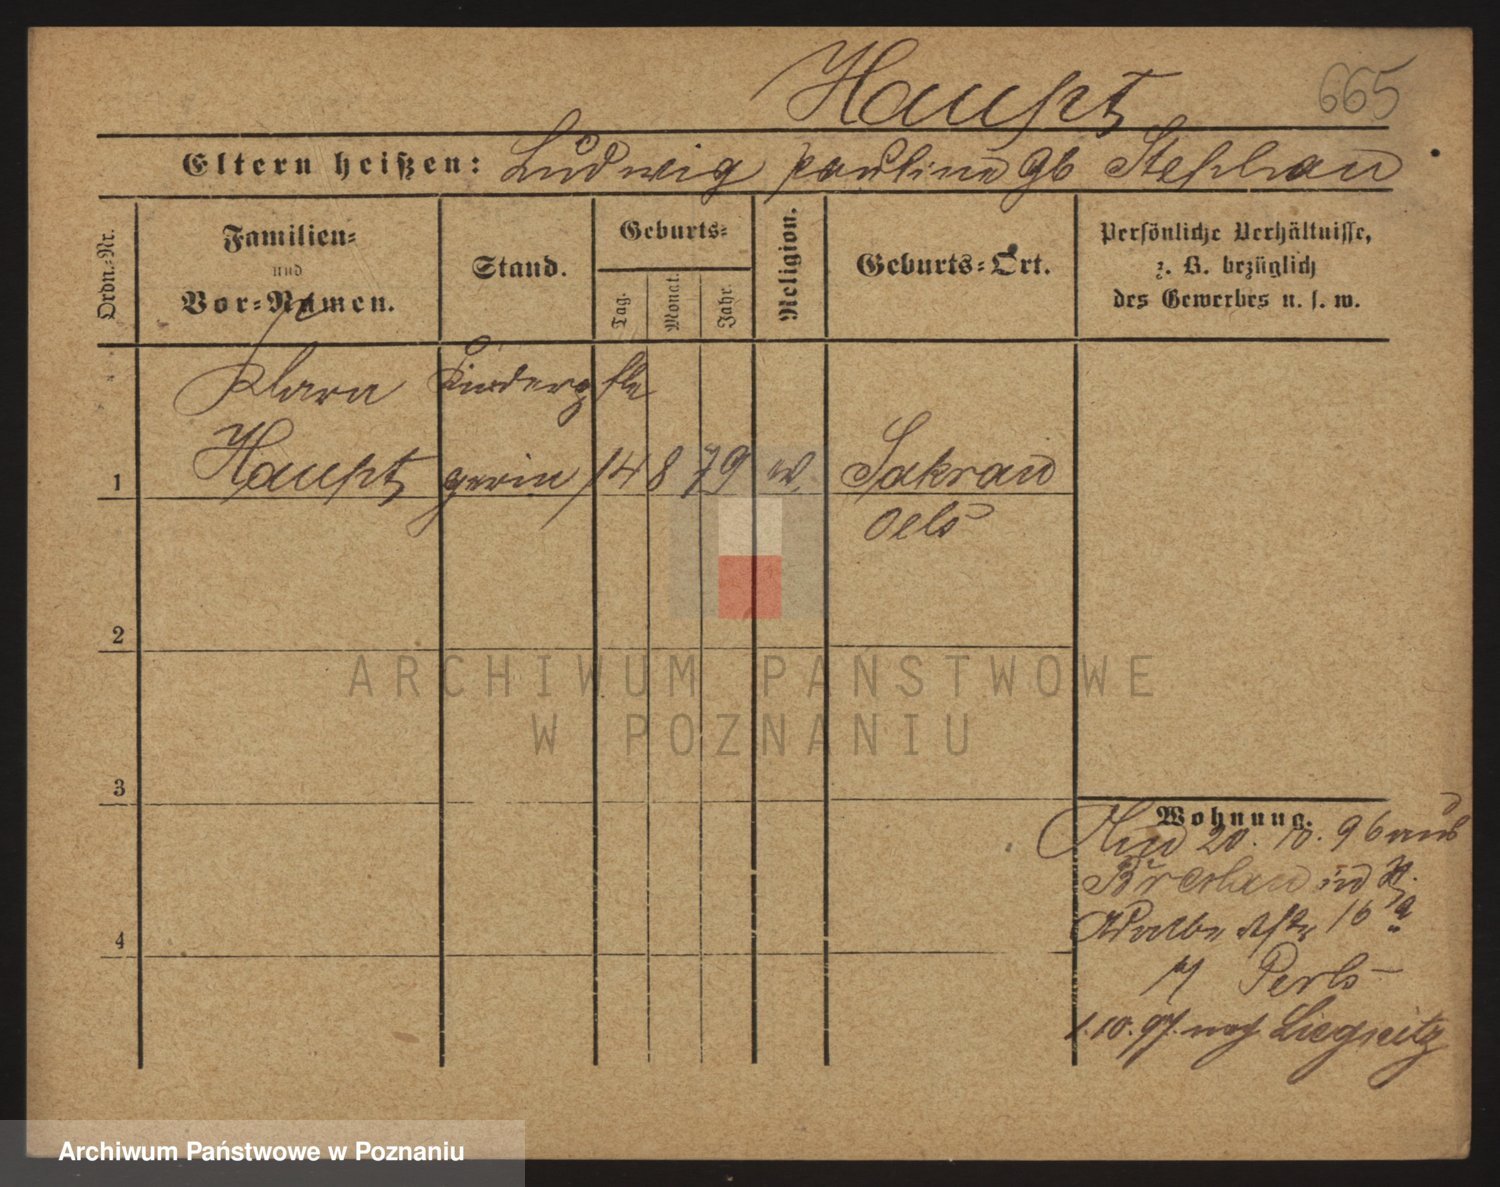 Haupt
665
Eltern heißen: Ludwig Pauline gb Stephan
Ordn.-Nr.
Familien-
und
Vor-Namen.
Stand.
Geburts-
Tag.
Monat.
Jahr.
Religion.
Geburts-Ort.
Persönliche Verhältnisse,
z. B. bezüglich
des Gewerbes u. s. w.
Klara Kinderpfle
1 Haupt gerin 14 8 79 Sakrau
Oels
2
ARCHIWUM PAŃSTWOWE
W POZNANIU
3
Wohnung.
20. 10. 96 aus
Breslau
16
Perls
1. 10. 97. nach Liegnitz
4
Archiwum Państwowe w Poznaniu